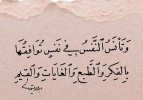 وَتَأنَسُ النَّفْسُ فِي نَفْسٍ تُوَافِقُهَا
بِالفِكرِ وَالطَّبعِ وَالغَايَاتِ وَالقِيَمِ